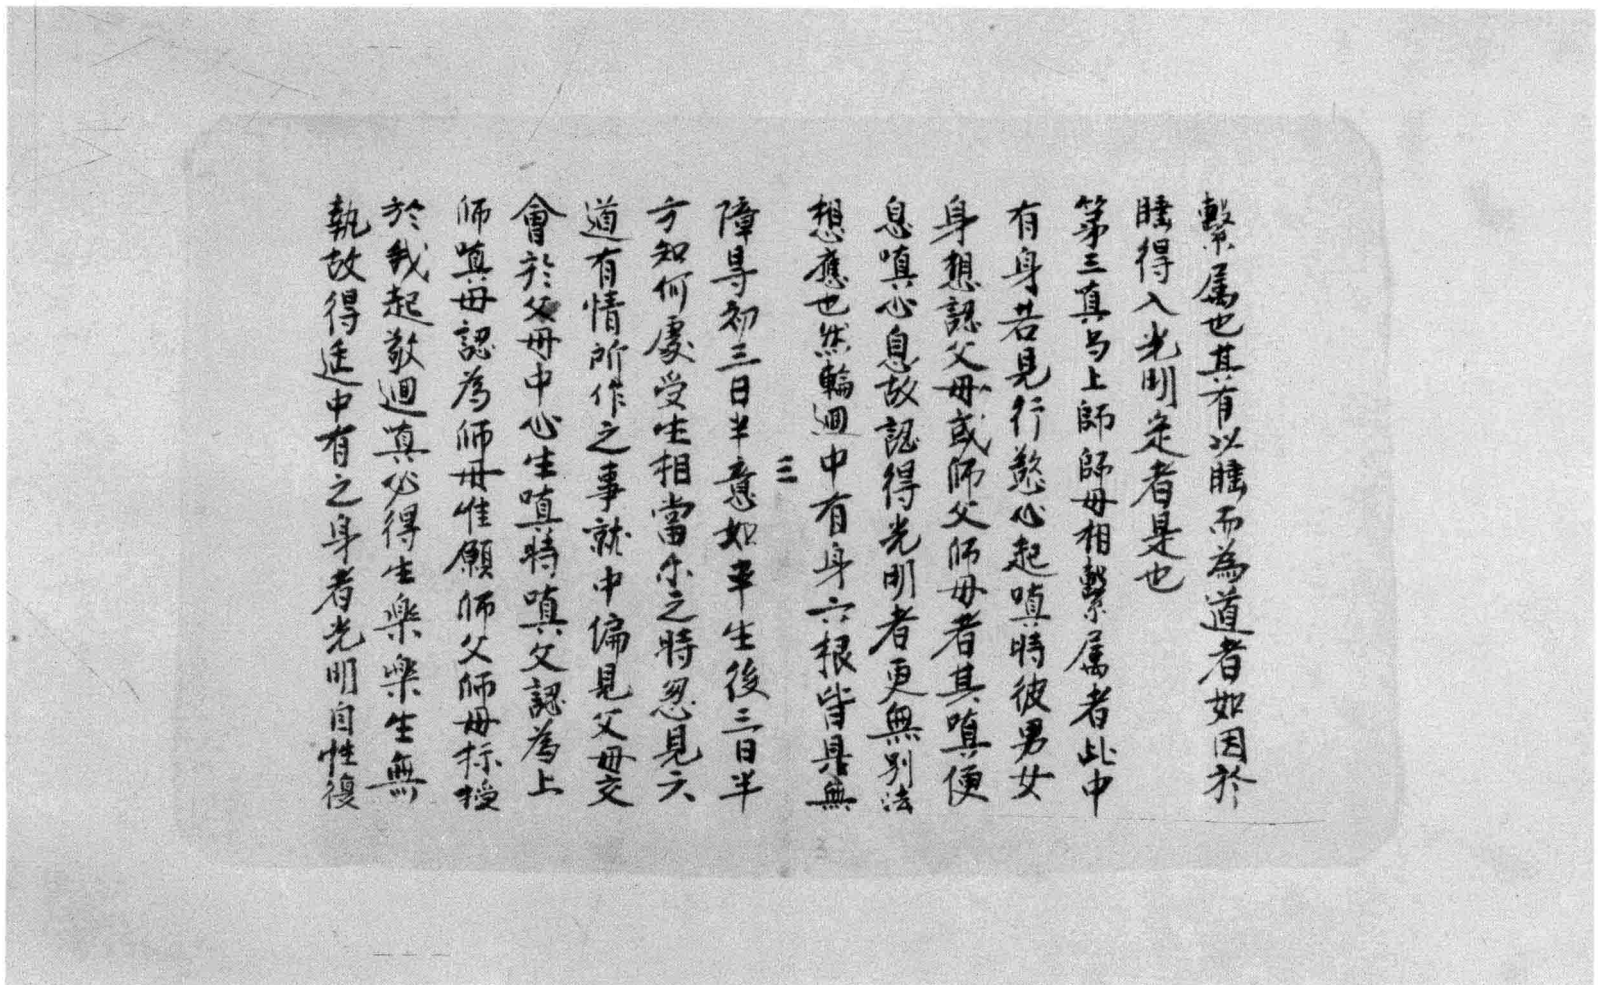 繫属也其有以睡而為道者如因於
睡得入光明定者是也
第三真与上師師母相繫属者此中
有身若見行慾心起嗔時彼男女
身想認父母或師父師母者其嗔便
息嗔心息故認得光明者更無別法
想應也然輪迴中有身六根皆具無
三
障㝵初三日半意如幸生後三日半
方知何處受生相當尓之時忽見六
道有情所作之事就中偏見父母交
會於父母中心生嗔時嗔父認為上
師嗔母認為師母惟願師父師母标授
於我起敬迴真必得生樂樂生無
執故得迋中有之身者光明自性復